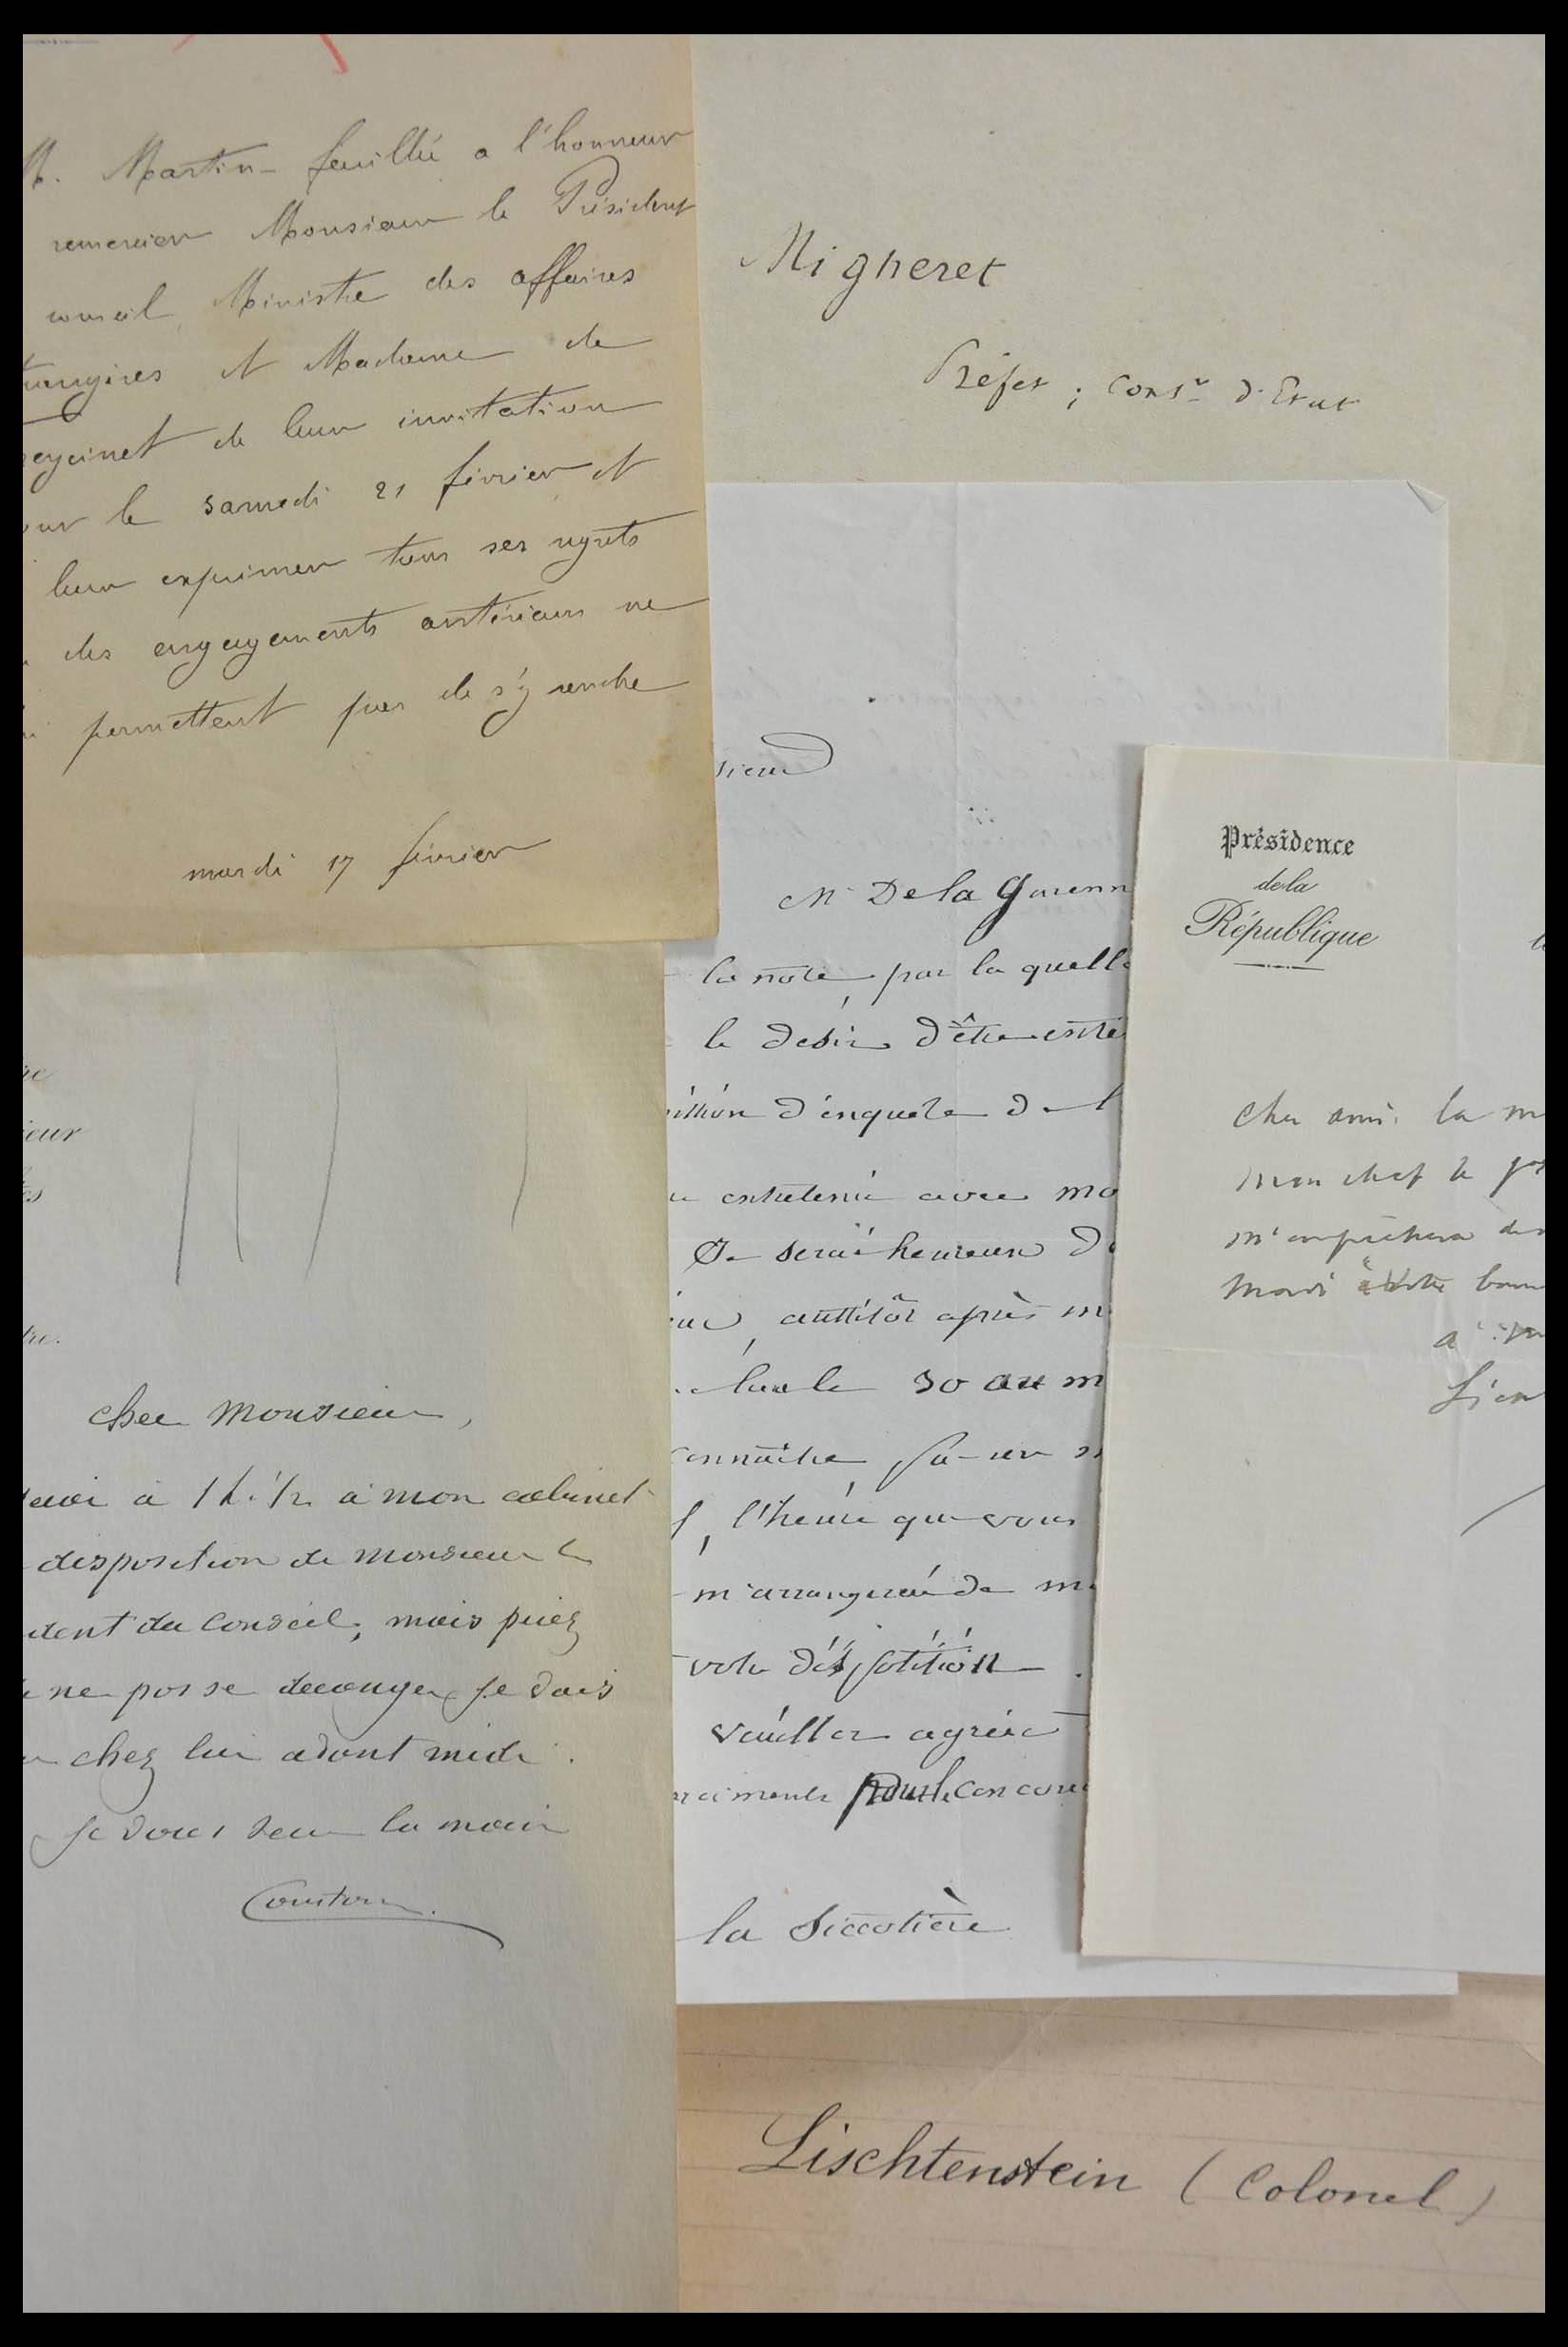 M. Martin-feuillée a l'honneur
remercier Monsieur le Président
conseil, Ministre des affaires
rangères et Madame de
eycinet de leur invitation
our le samedi 21 février et
leur exprimer tous ses regrets
des engagements antérieurs ne
permettent pas de s'y rendre
mardi 17 février
Migneret
Préfet ; Cons.r d'Etat
sieur
Mr De la Garenn
la note, par la quelle
le desir d'être ente
d'enquete de l
entretenir avec mo
Je serai heureux de
aussitôt après m
le 30 au m
connaitre,
l'heure que vous
m'arrangerai de m
votre disposition.
veuillez agréer
pour le concou
la Sicotière
Présidence
de la
République
Cher ami. la m
mon chef le
m'empêchera de
Mardi à votre bonn
a
Lien
re
ieur
es
tre.
cher Monsieur,
serai à 1 h. 1/2 à mon cabinet
disposition de Monsieur le
ident du Conseil, mais priez
le ne pas se déranger je dois
chez lui avant midi.
Je vous serre la main
Constans.
Lischtenstein (Colonel)